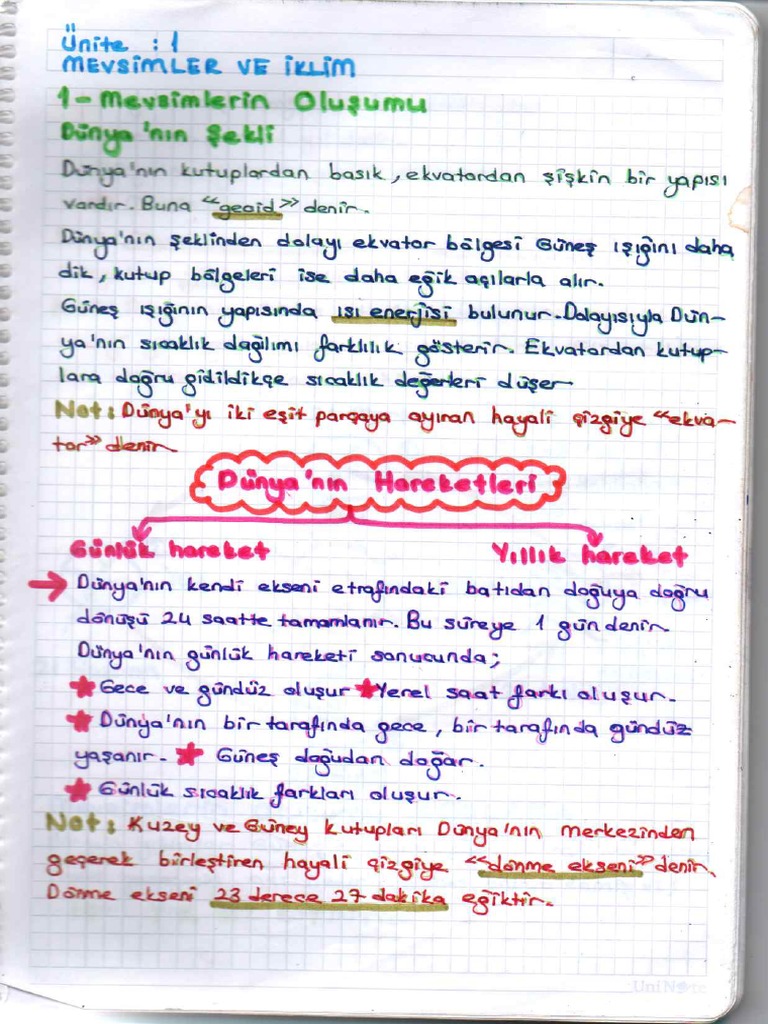 Ünite : 1
MEVSİMLER VE İKLİM
1- Mevsimlerin Oluşumu
Dünya'nın Şekli
Dünya'nın kutuplardan basık, ekvatordan şişkin bir yapısı
vardır. Buna "geoid" denir.
Dünya'nın şeklinden dolayı ekvator bölgesi Güneş ışığını daha
dik, kutup bölgeleri ise daha eğik açılarla alır.
Güneş ışığının yapısında ısı enerjisi bulunur. Dolayısıyla Dün-
ya'nın sıcaklık dağılımı farklılık gösterir. Ekvatordan kutup-
lara doğru gidildikçe sıcaklık değerleri düşer
Not: Dünya'yı iki eşit parçaya ayıran hayali çizgiye "ekva-
tor" denir.
Dünya'nın Hareketleri
Günlük hareket Yıllık hareket
→ Dünya'nın kendi ekseni etrafındaki batıdan doğuya doğru
dönüşü 24 saatte tamamlanır. Bu süreye 1 gün denir.
Dünya'nın günlük hareketi sonucunda;
★ Gece ve gündüz oluşur ★ Yerel saat farkı oluşur.
★ Dünya'nın bir tarafında gece, bir tarafında gündüz
yaşanır. ★ Güneş doğudan doğar.
★ Günlük sıcaklık farkları oluşur.
Not: Kuzey ve Güney kutupları Dünya'nın merkezinden
geçerek birleştiren hayali çizgiye "dönme ekseni" denir.
Dönme ekseni 23 derece 27 dakika eğiktir.
UniNote